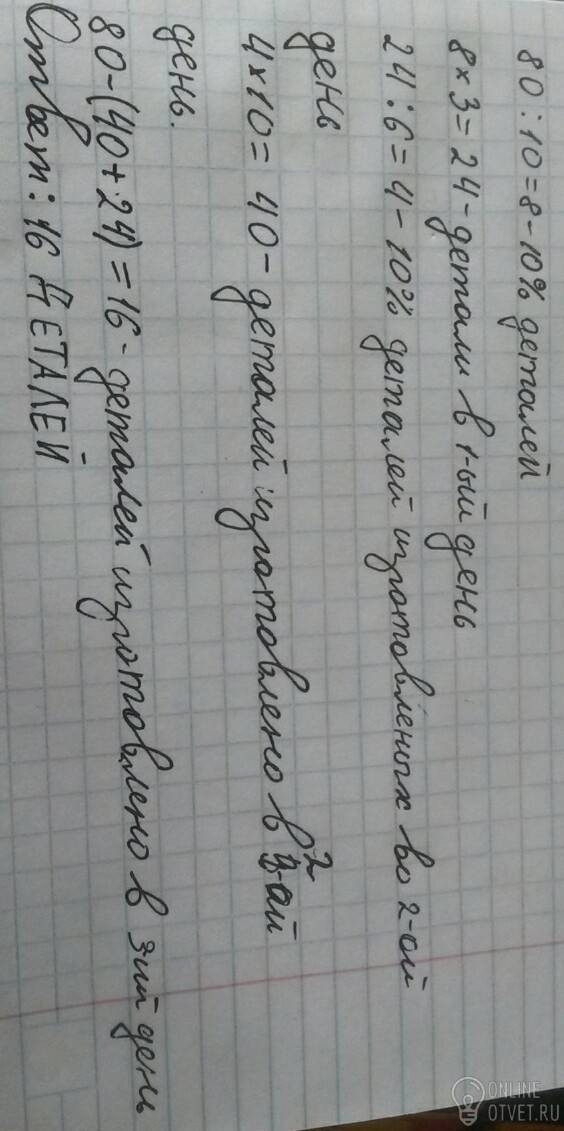 80:10=8-10% деталей
8×3=24-детали в 1-ый день
24:6=4-10% деталей изготовленых во 2-ой
день
4×10=40-деталей изготовлено в 2-ой
день.
80-(40+24)=16-деталей изготовлено в 3ий день
Ответ: 16 ДЕТАЛЕЙ
ONLINE
OTVET.RU